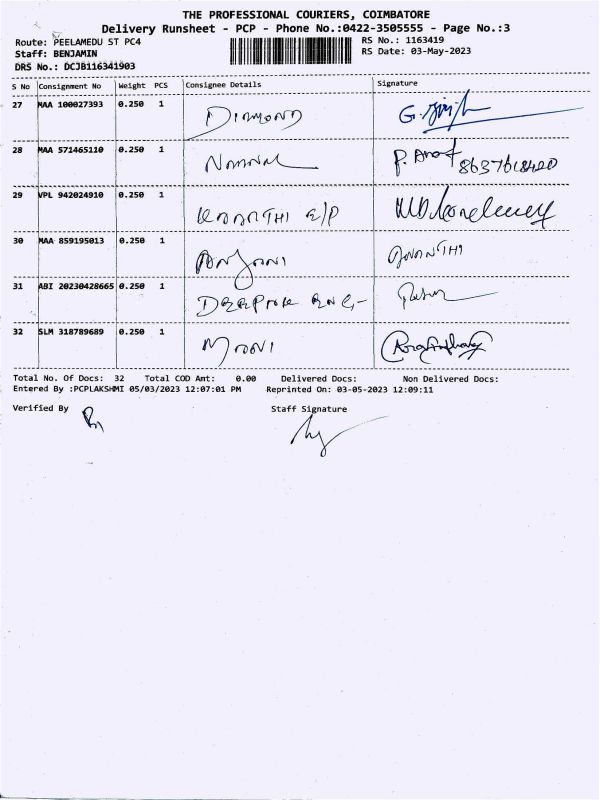 THE PROFESSIONAL COURIERS, COIMBATORE
Delivery Runsheet - PCP - Phone No.:0422-3505555 - Page No.:3
Route: PEELAMEDU ST PC4
RS No.: 1163419
Staff: BENJAMIN
RS Date: 03-May-2023
DRS No.: DCJB116341903
S No Consignment No Weight PCS Consignee Details Signature
27 MAA 100027393 0.250 1 DIAMOND
28 MAA 571465110 0.250 1
29 VPL 942024910 0.250 1 E/P
30 MAA 859195013 0.250 1 ANJONI
31 ABI 20230428665 0.250 1
32 SLM 318789689 0.250 1
Total No. Of Docs: 32 Total COD Amt: 0.00 Delivered Docs: Non Delivered Docs:
Entered By :PCPLAKSHMI 05/03/2023 12:07:01 PM Reprinted On: 03-05-2023 12:09:11
Verified By Staff Signature